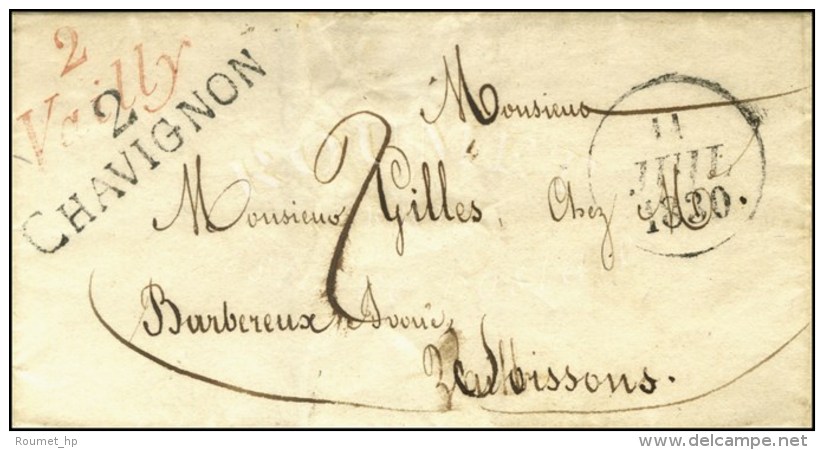 2
Vailly
2
CHAVIGNON
Monsieur
11
JUIL
1830
2
Monsieur Gilles, Chez M.
Barbereux Avoué,
Soissons.
Roumet_hp
www.delcampe.net